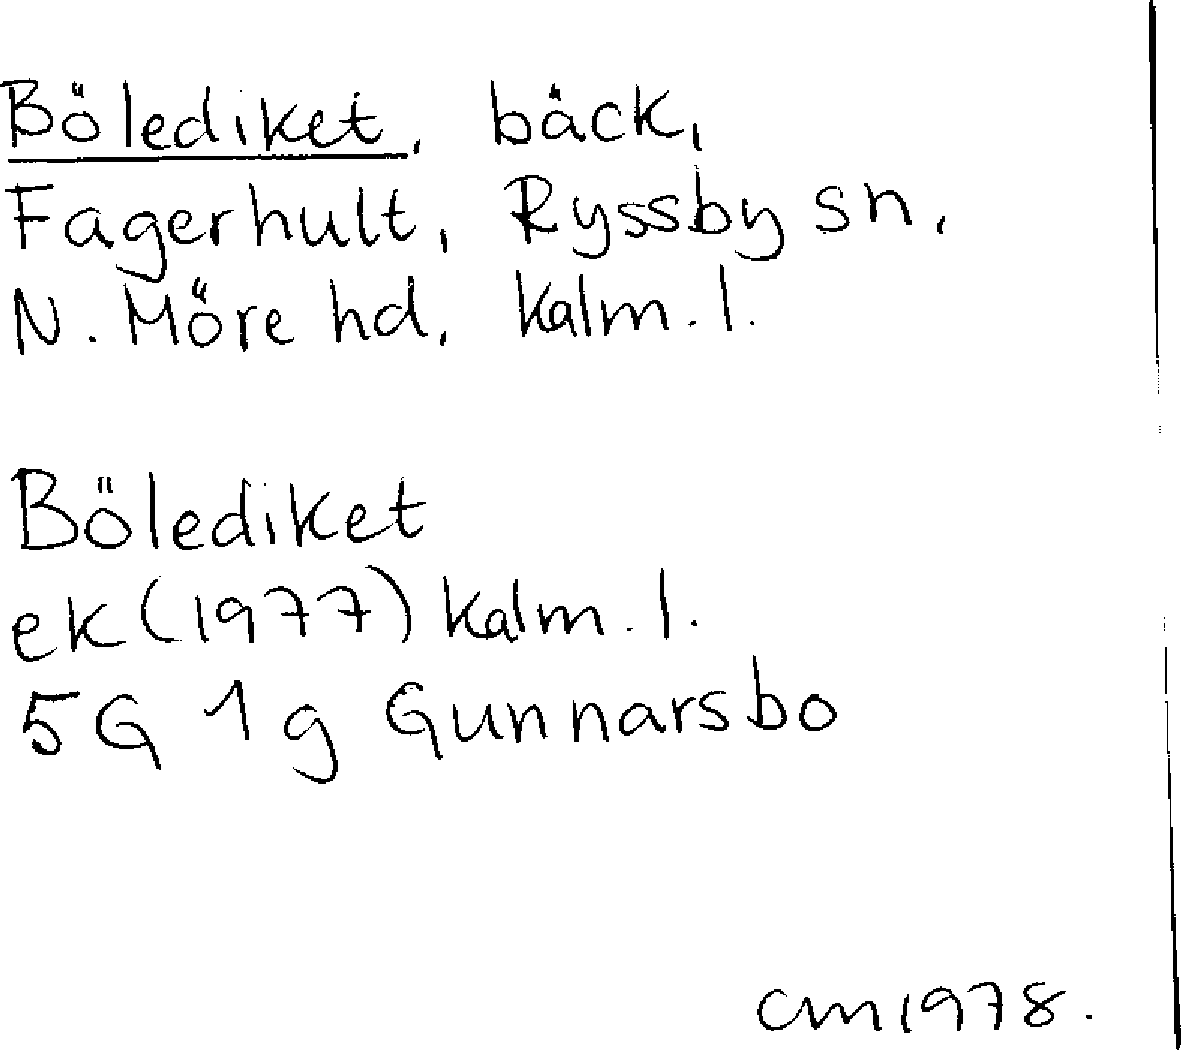 Bölediket, bäck,
Fagerhult, Ryssby sn,
N. Möre hd, Kalm. l.
Bölediket
ek (1977) Kalm. l.
5G 1g Gunnarsbo
CM 1978.